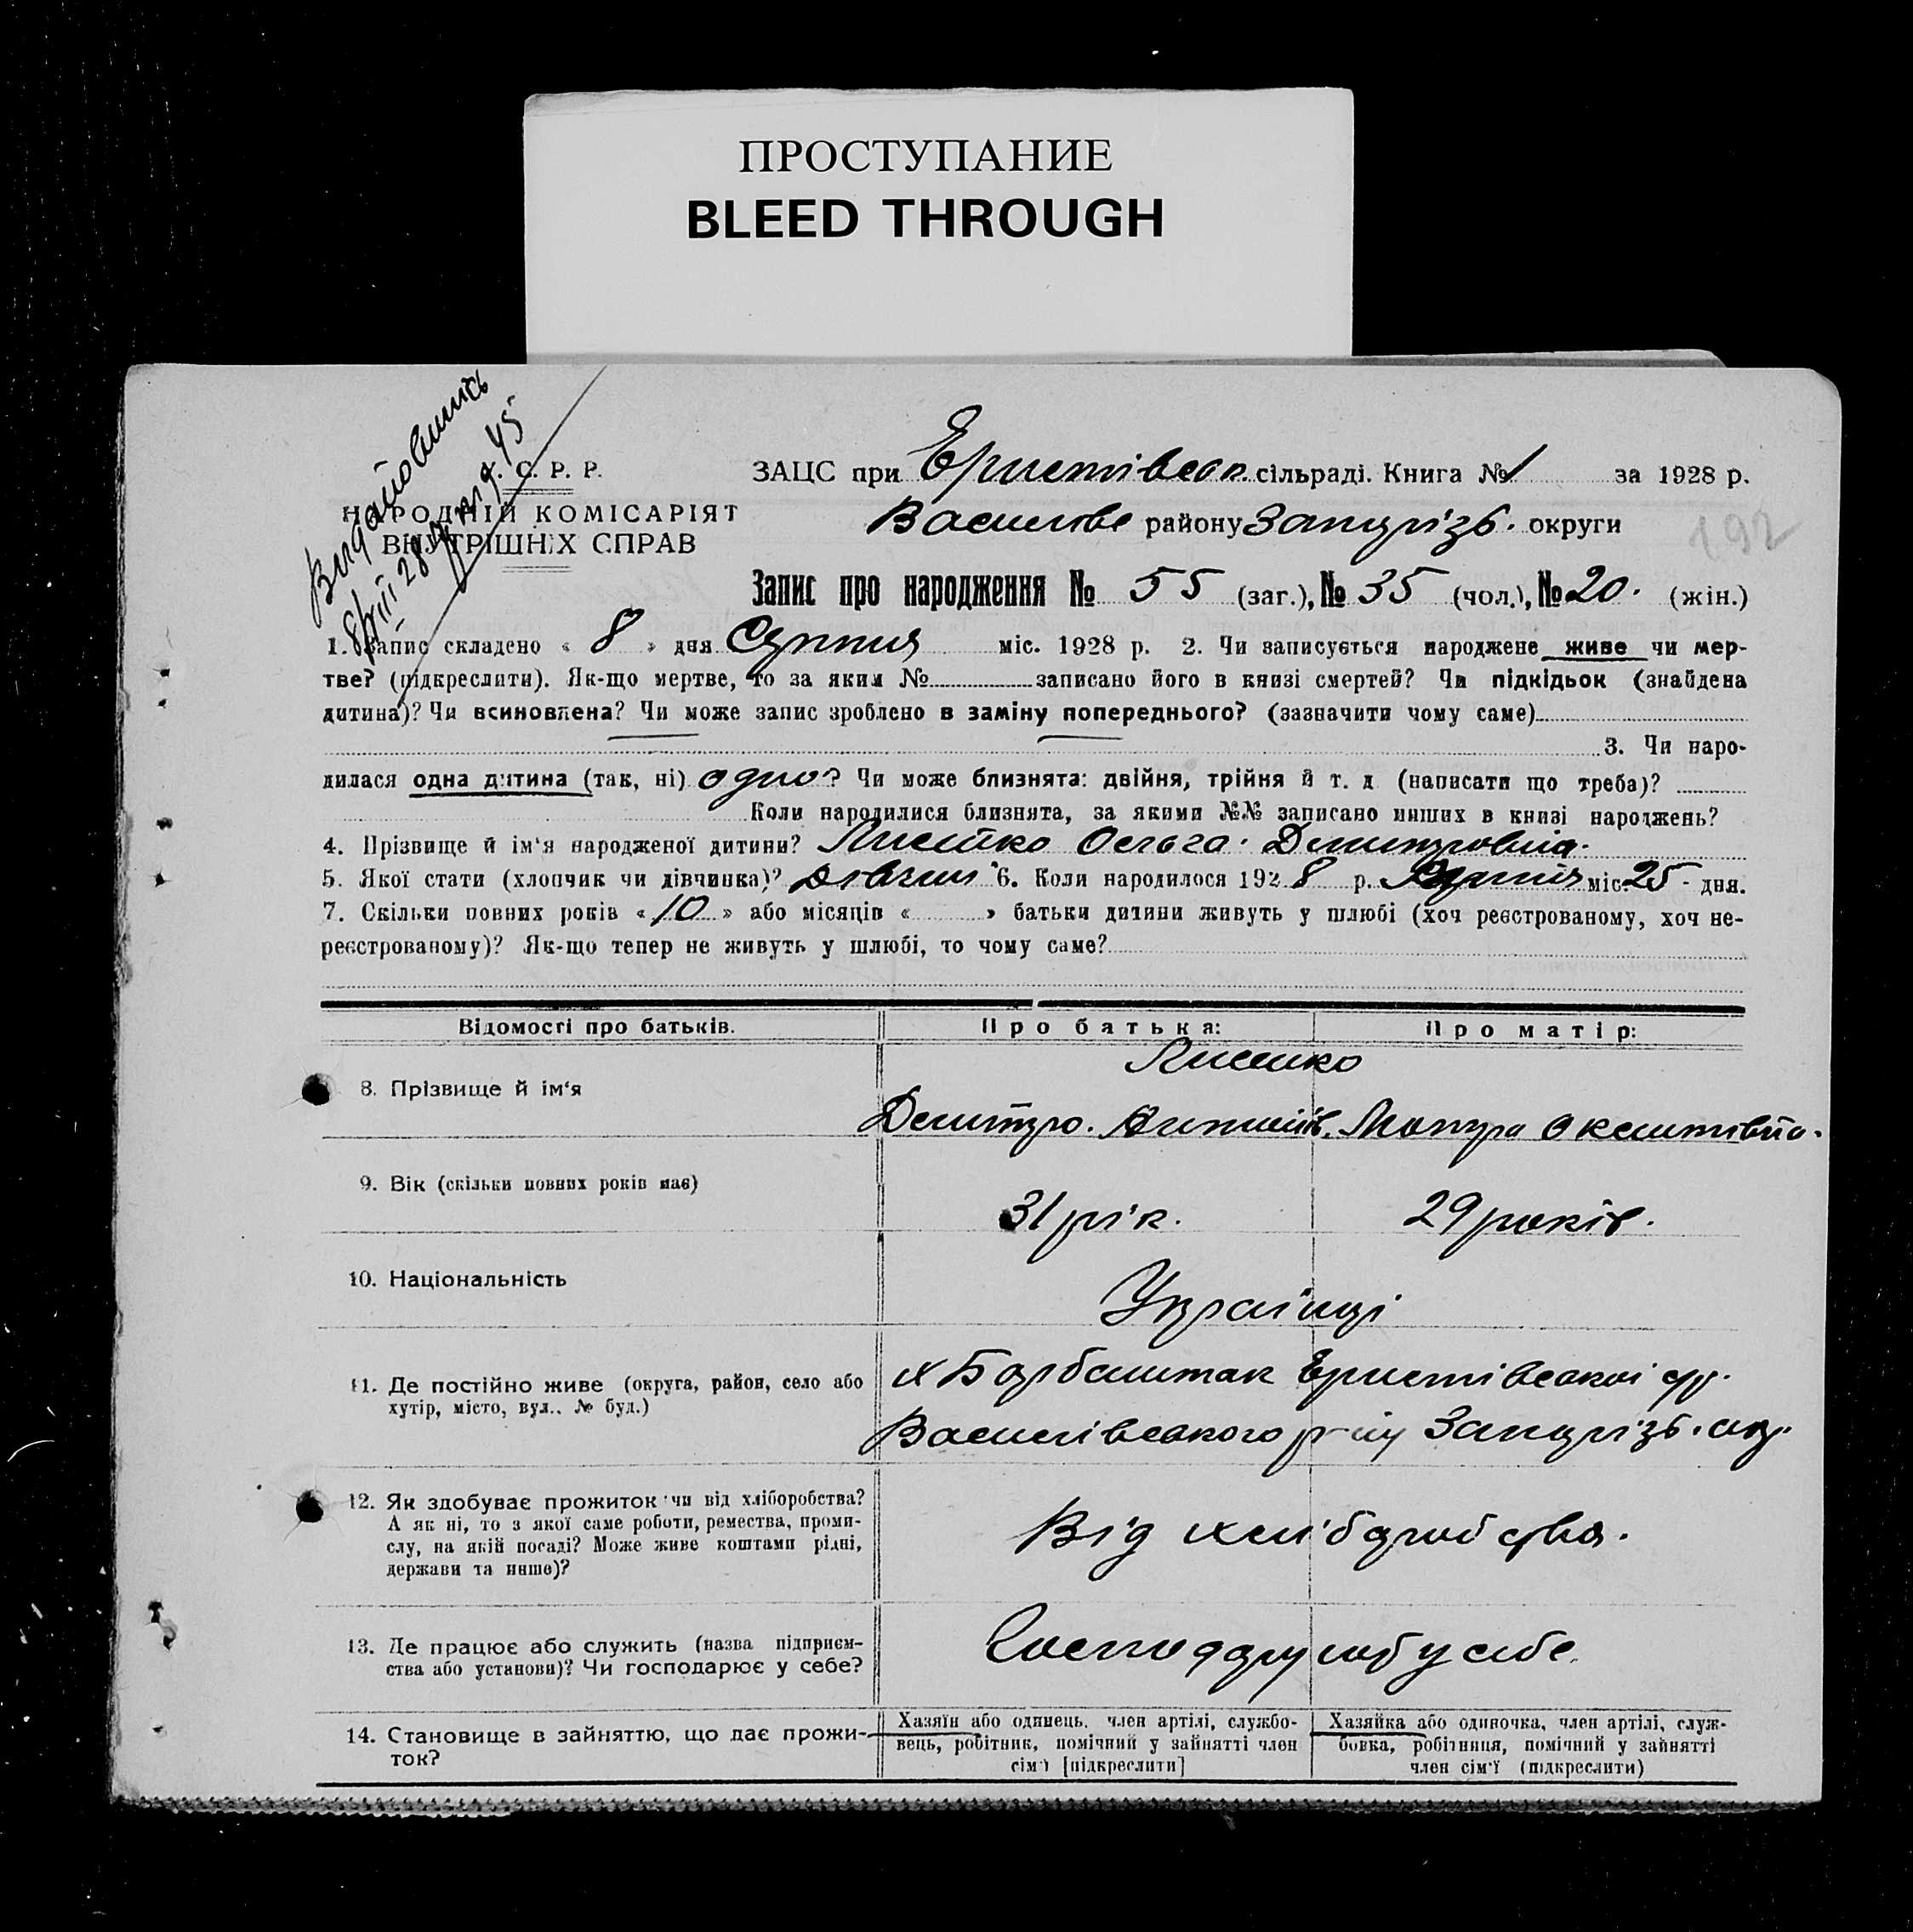 ПРОСТУПАНИЕ
BLEED THROUGH
С. Р. Р.
НАРОДНІЙ КОМІСАРІЯТ
ВНУТРІШНІХ СПРАВ
ЗАЦС при Еристівськ. сільраді. Книга № 1 за 1928 р.
Василівс району Запорізь. округи
192
Запис про народження № 55 (заг.), № 35 (чол.), № 20. (жін.)
1. Запис складено « 8 » дня Серпня міс. 1928 р. 2. Чи записується народжене живе чи мер-
тве? (підкреслити). Як-що мертве, то за яким № записано його в книзі смертей? Чи підкідьок (знайдена
дитина)? Чи всиновлена? Чи може запис зроблено в заміну попереднього? (зазначити чому саме)
3. Чи наро-
дилася одна дитина (так, ні) одно? Чи може близнята: двійня, трійня й т. д (написати що треба)?
Коли народилися близнята, за якими №№ записано инших в книзі народжень?
4. Прізвище й ім'я народженої дитини? Ольга Демитровна.
5. Якої стати (хлопчик чи дівчинка)? 6. Коли народилося 1928 р. міс. 25 - дня.
7. Скільки повних років « 10 » або місяців « » батьки дитини живуть у шлюбі (хоч реєстрованому, хоч не-
реєстрованому)? Як-що тепер не живуть у шлюбі, то чому саме?
Відомості про батьків. Про батька: Про матір:
8. Прізвище й ім'я
Демитро.
9. Вік (скільки повних років має) 31 рік. 29 років.
10. Національність Українці
11. Де постійно живе (округа, район, село або
хутір, місто, вул., № буд.)
х Еристівської
Василівського р-ну Запорізь. окр.
12. Як здобуває прожиток чи від хліборобства?
А як ні, то з якої саме роботи, ремества, проми-
слу, на якій посаді? Може живе коштами рідні,
держави та инше)?
Від хліборобства.
13. Де працює або служить (назва підприєм-
ства або установи)? Чи господарює у себе?
у себе.
14. Становище в зайняттю, що дає прожи-
ток?
Хазяїн або одинець, член артілі, службо-
вець, робітник, помічний у зайнятті член
сім'ї [підкреслити]
Хазяйка або одиночка, член артілі, служ-
бовка, робітниця, помічний у зайнятті
член сім'ї (підкреслити)